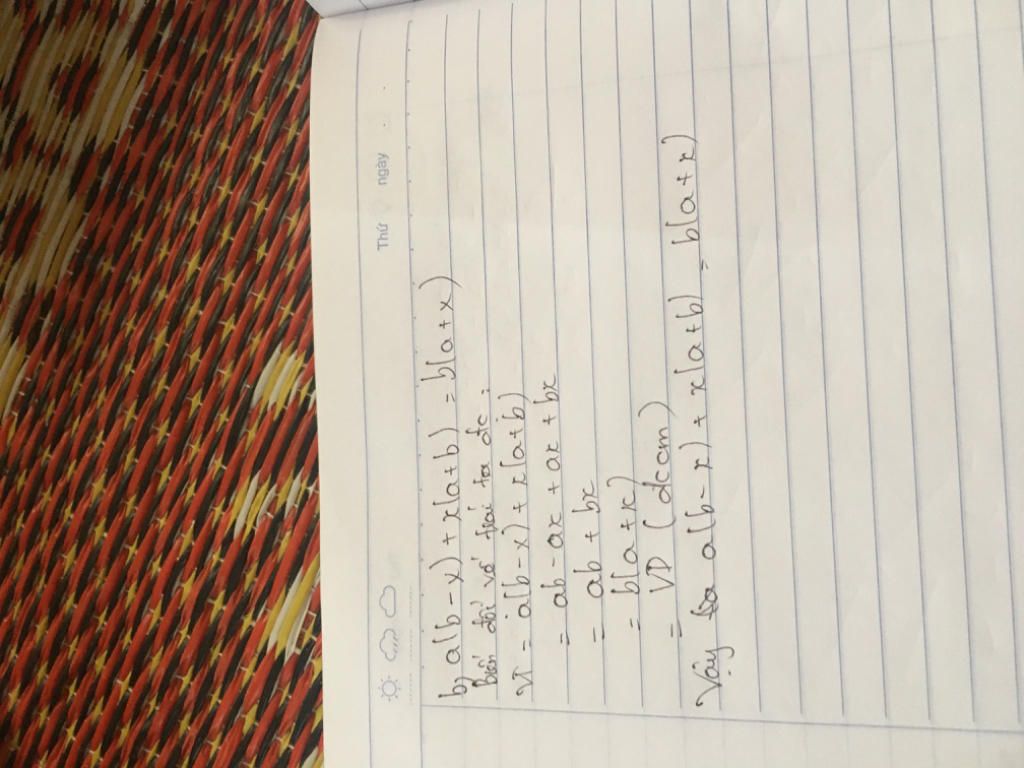 Thứ ngày
b) a(b-x)+x(a+b) = b(a+x)
Biến đổi vế trái ta đc :
VT = a(b-x)+x(a+b)
= ab-ax+ax+bx
= ab+bx
= b(a+x)
= VP (đccm)
Vậy a(b-x)+x(a+b) = b(a+x)